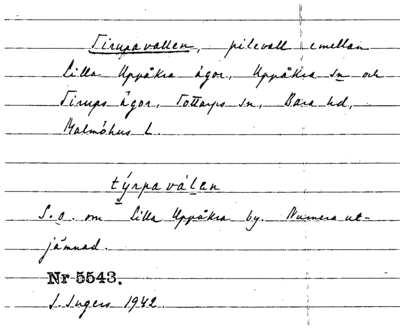 Tirupavallen, pilevall emellan
Lilla Uppåkra ägor, Uppåkra sn och
Tirups ägor, Tottarps sn, Bara hd,
Malmöhus l.
týrpaválen
S.o. om Lilla Uppåkra by. Numera ut-
jämnad.
Nr 5543.
I. Ingers 1942